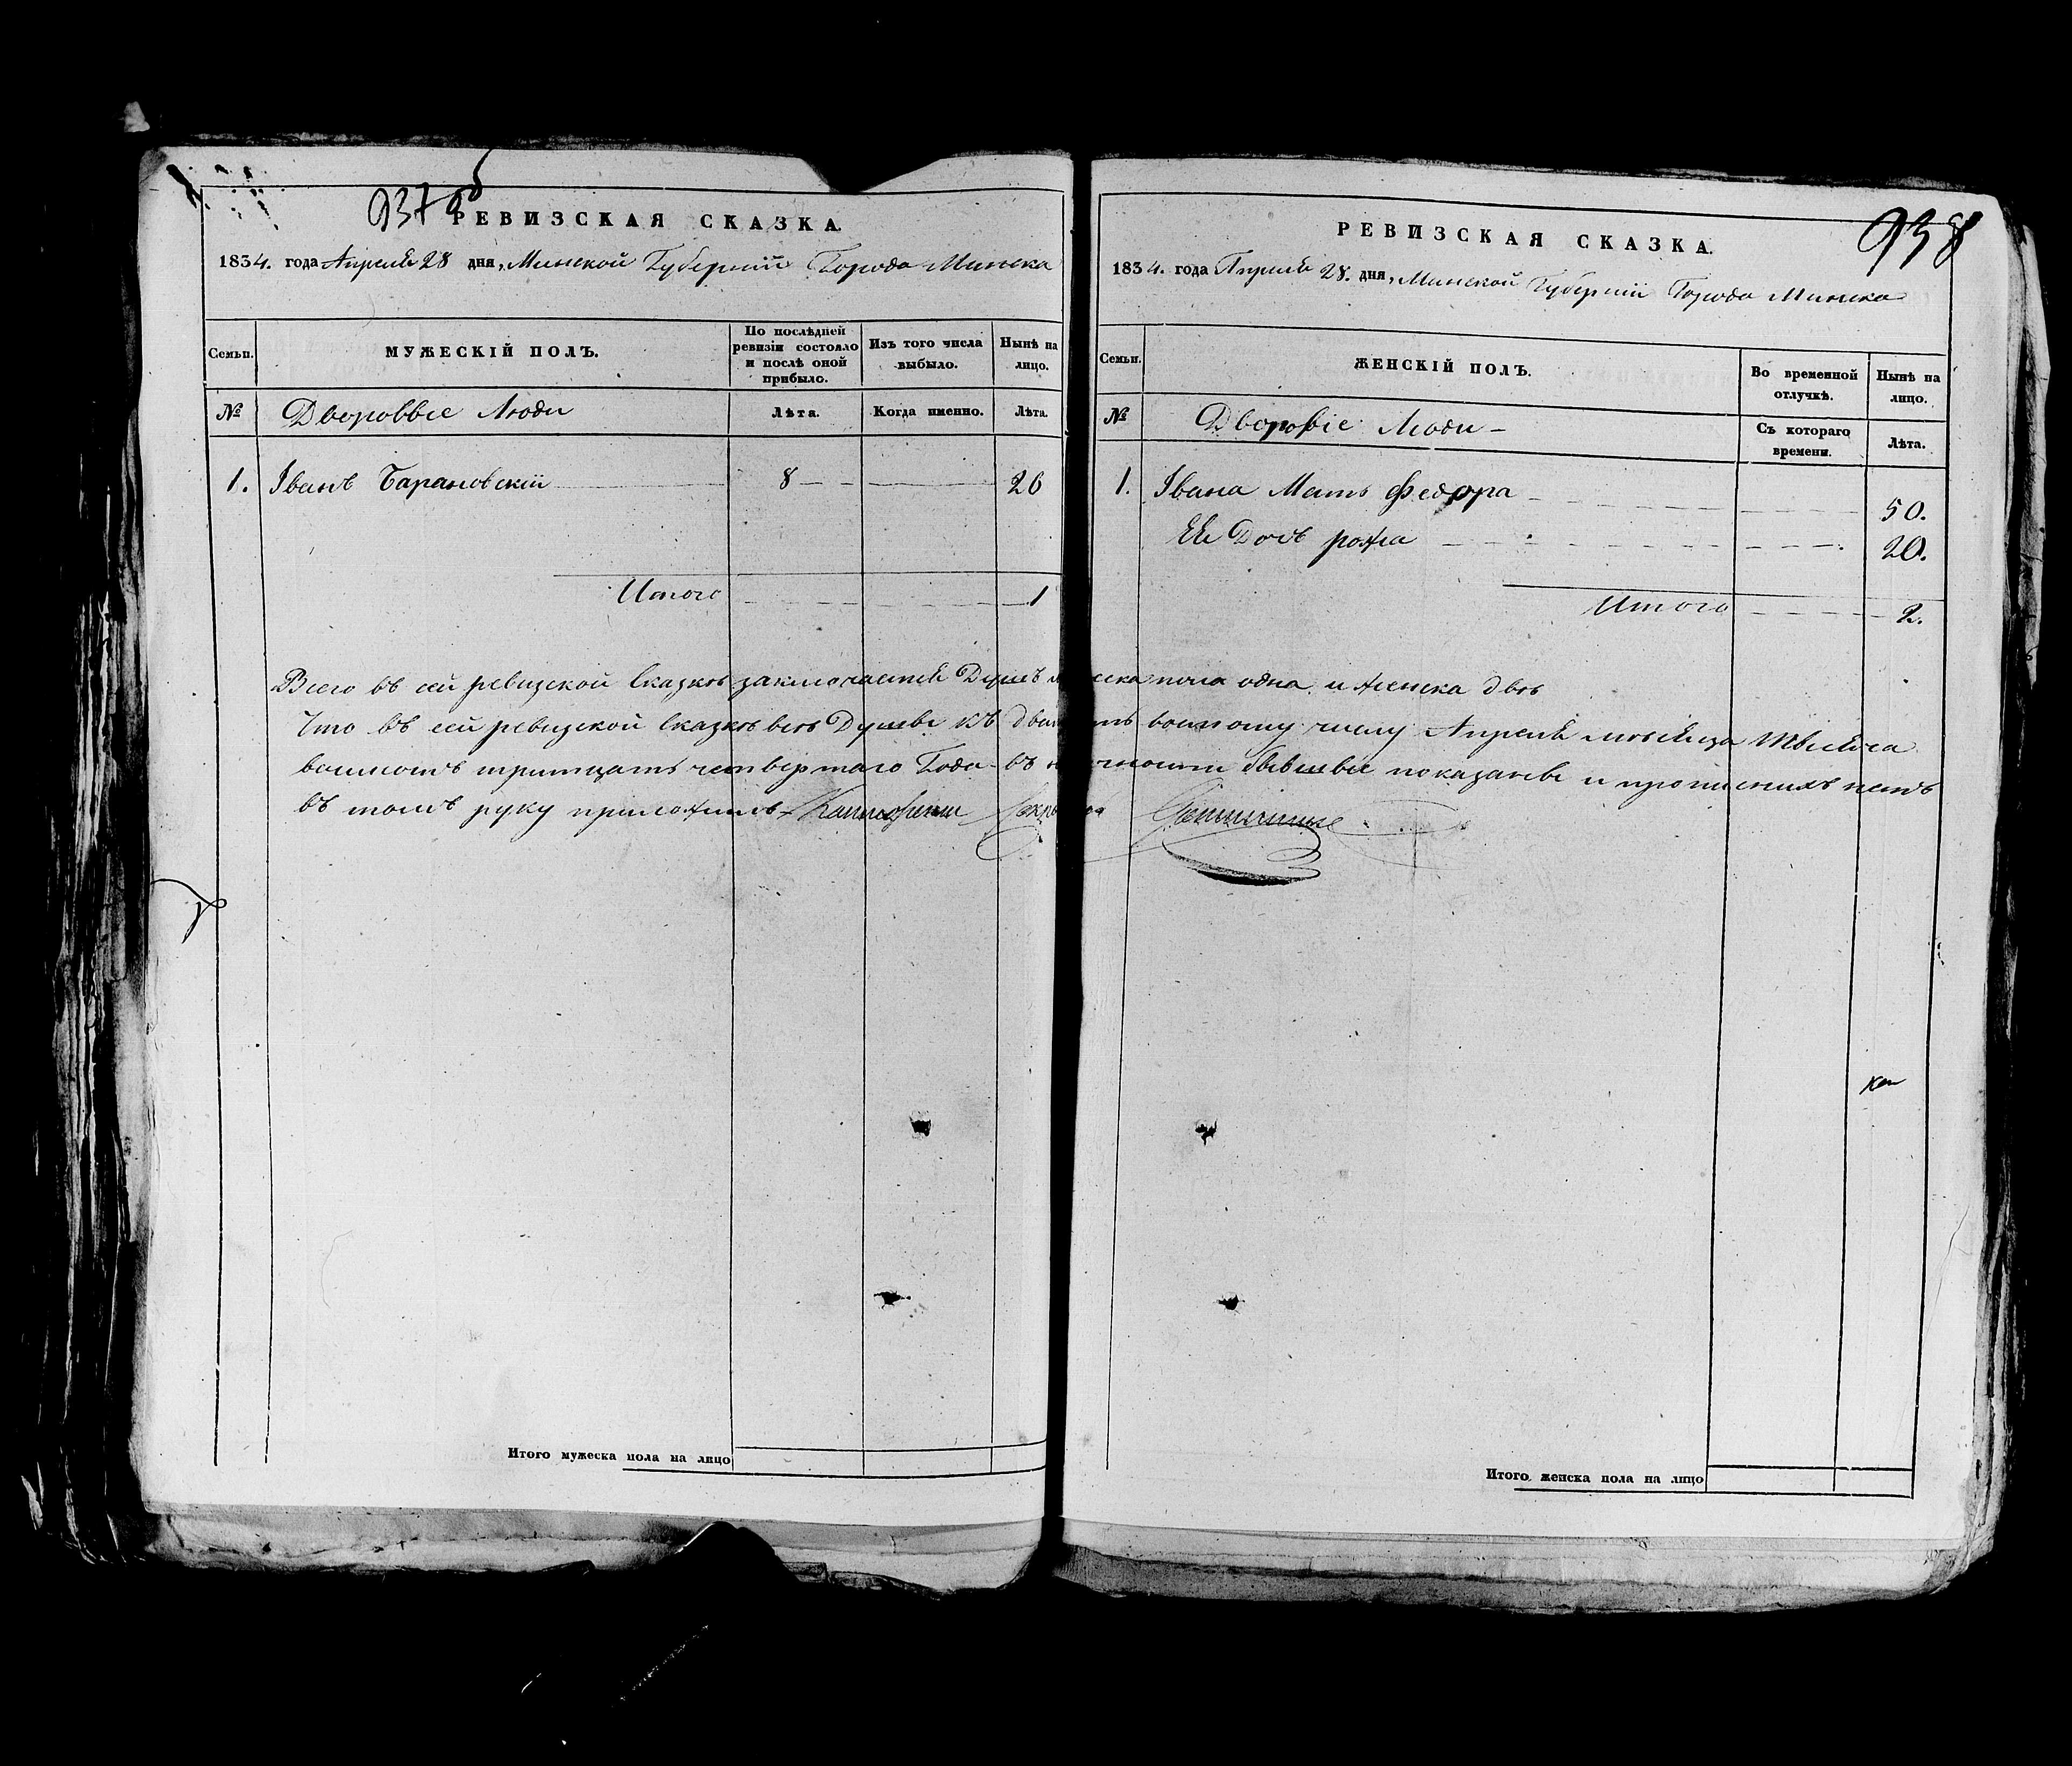 937 об
РЕВИЗСКАЯ СКАЗКА.
1834. года Апреля 28 дня, Минской Губерніи Города Минска
Семьи.
МУЖЕСКІЙ ПОЛЪ.
По послѣдней ревизіи состояло и послѣ оной прибыло.
Изъ того числа выбыло.
Нынѣ на лицо.
№
Дворовые Люди
Лѣта.
Когда именно.
Лѣта.
1. Іванъ Барановскій 8 26
Итого 1
938
РЕВИЗСКАЯ СКАЗКА.
1834. года Апреля 28. дня, Минской Губерніи Города Минска
Семьи.
ЖЕНСКІЙ ПОЛЪ.
Во временной отлучкѣ.
Нынѣ на лицо.
№
Дворовіе Люди
Съ котораго времени.
Лѣта.
1. Івана Мать Федора 50.
Ея Дочь рожа 20.
Итого 2.
Всего въ сей ревизской сказкѣ заключается Душъ пола одна и женска двѣ
Что въ сей ревизской сказкѣ всѣ Души къ восмому числу Апреля мѣсяца
восмсотъ тритцать четвертаго Года въ бывшые показаны и прописныхъ нетъ
въ томъ руку приложилъ
Итого мужеска пола на лицо
Итого женска пола на лицо